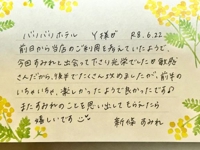 バリバリホテル Y様が R8.6.22
前日から当店のご利用を考えていたようで、
今回すみれと出会って下さり光栄でしたが敏感
さんだから、後半でたくさん攻めましたが、前半の
いちゃいちゃ、楽しかったようで良かったです
またすみれのことを思い出してもらえたら
嬉しいです
新條 すみれ